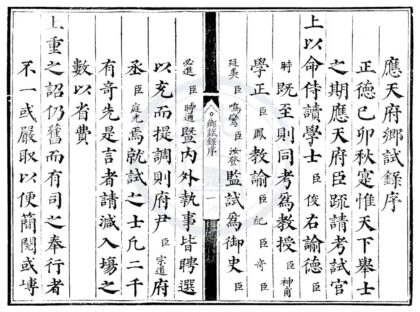 應天府鄉試錄序
正德己卯秋寔惟天下舉士
之期應天府臣踈請考試官
上以命侍讀學士臣俊右諭德臣
時既至則同考爲教授臣神甫
學正臣鳳教諭臣紀臣奇臣
鄉試錄序
一
廷美臣鳴鸞臣汝登監試爲御史臣
必進臣時通曁內外執事皆聘選
以充而提調則府尹臣宗道府
丞臣庭光焉就試之士凡二千
有奇先是言者請減入塲之
數以省費
上重之詔仍舊而有司之奉行者
不一或嚴取以便簡閱或